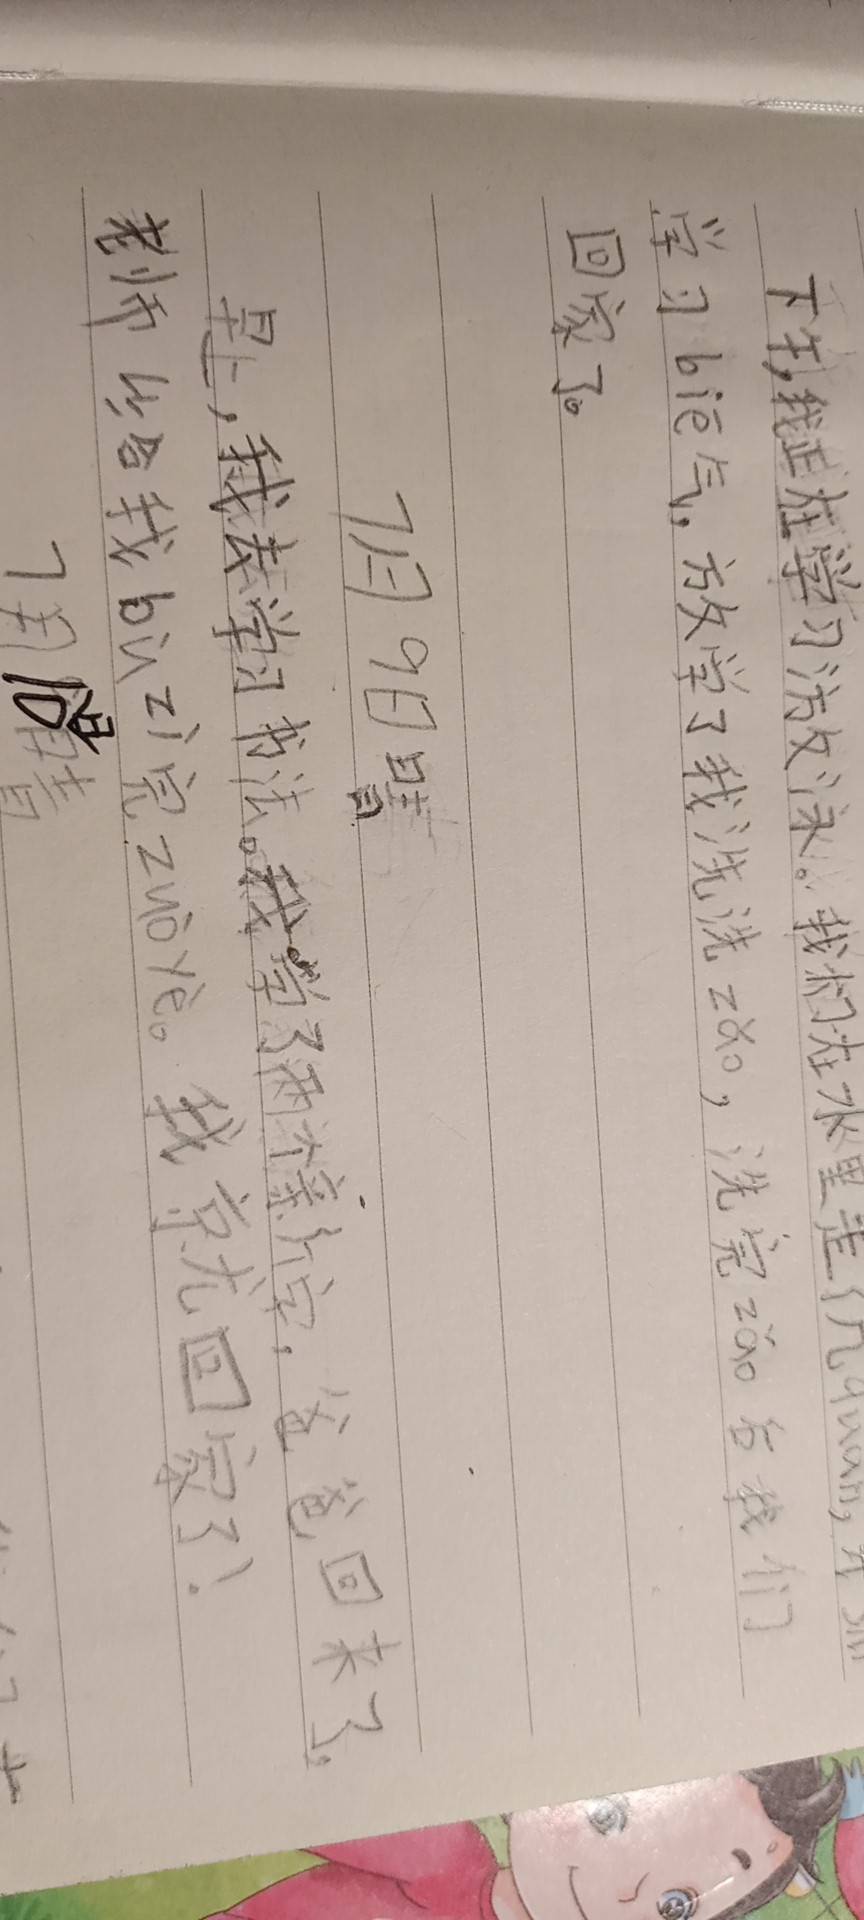 下午,我正在学习游泳。我们在水里走几quan,
学习biē气,放学了我洗洗zǎo,洗完zǎo后我们
回家了。
7月9日 晴
早上,我去学习书法。我学了两个字,爸爸回来了。
老师给我bù zì完zuòyè。我京尤回家了!
7月10日 晴